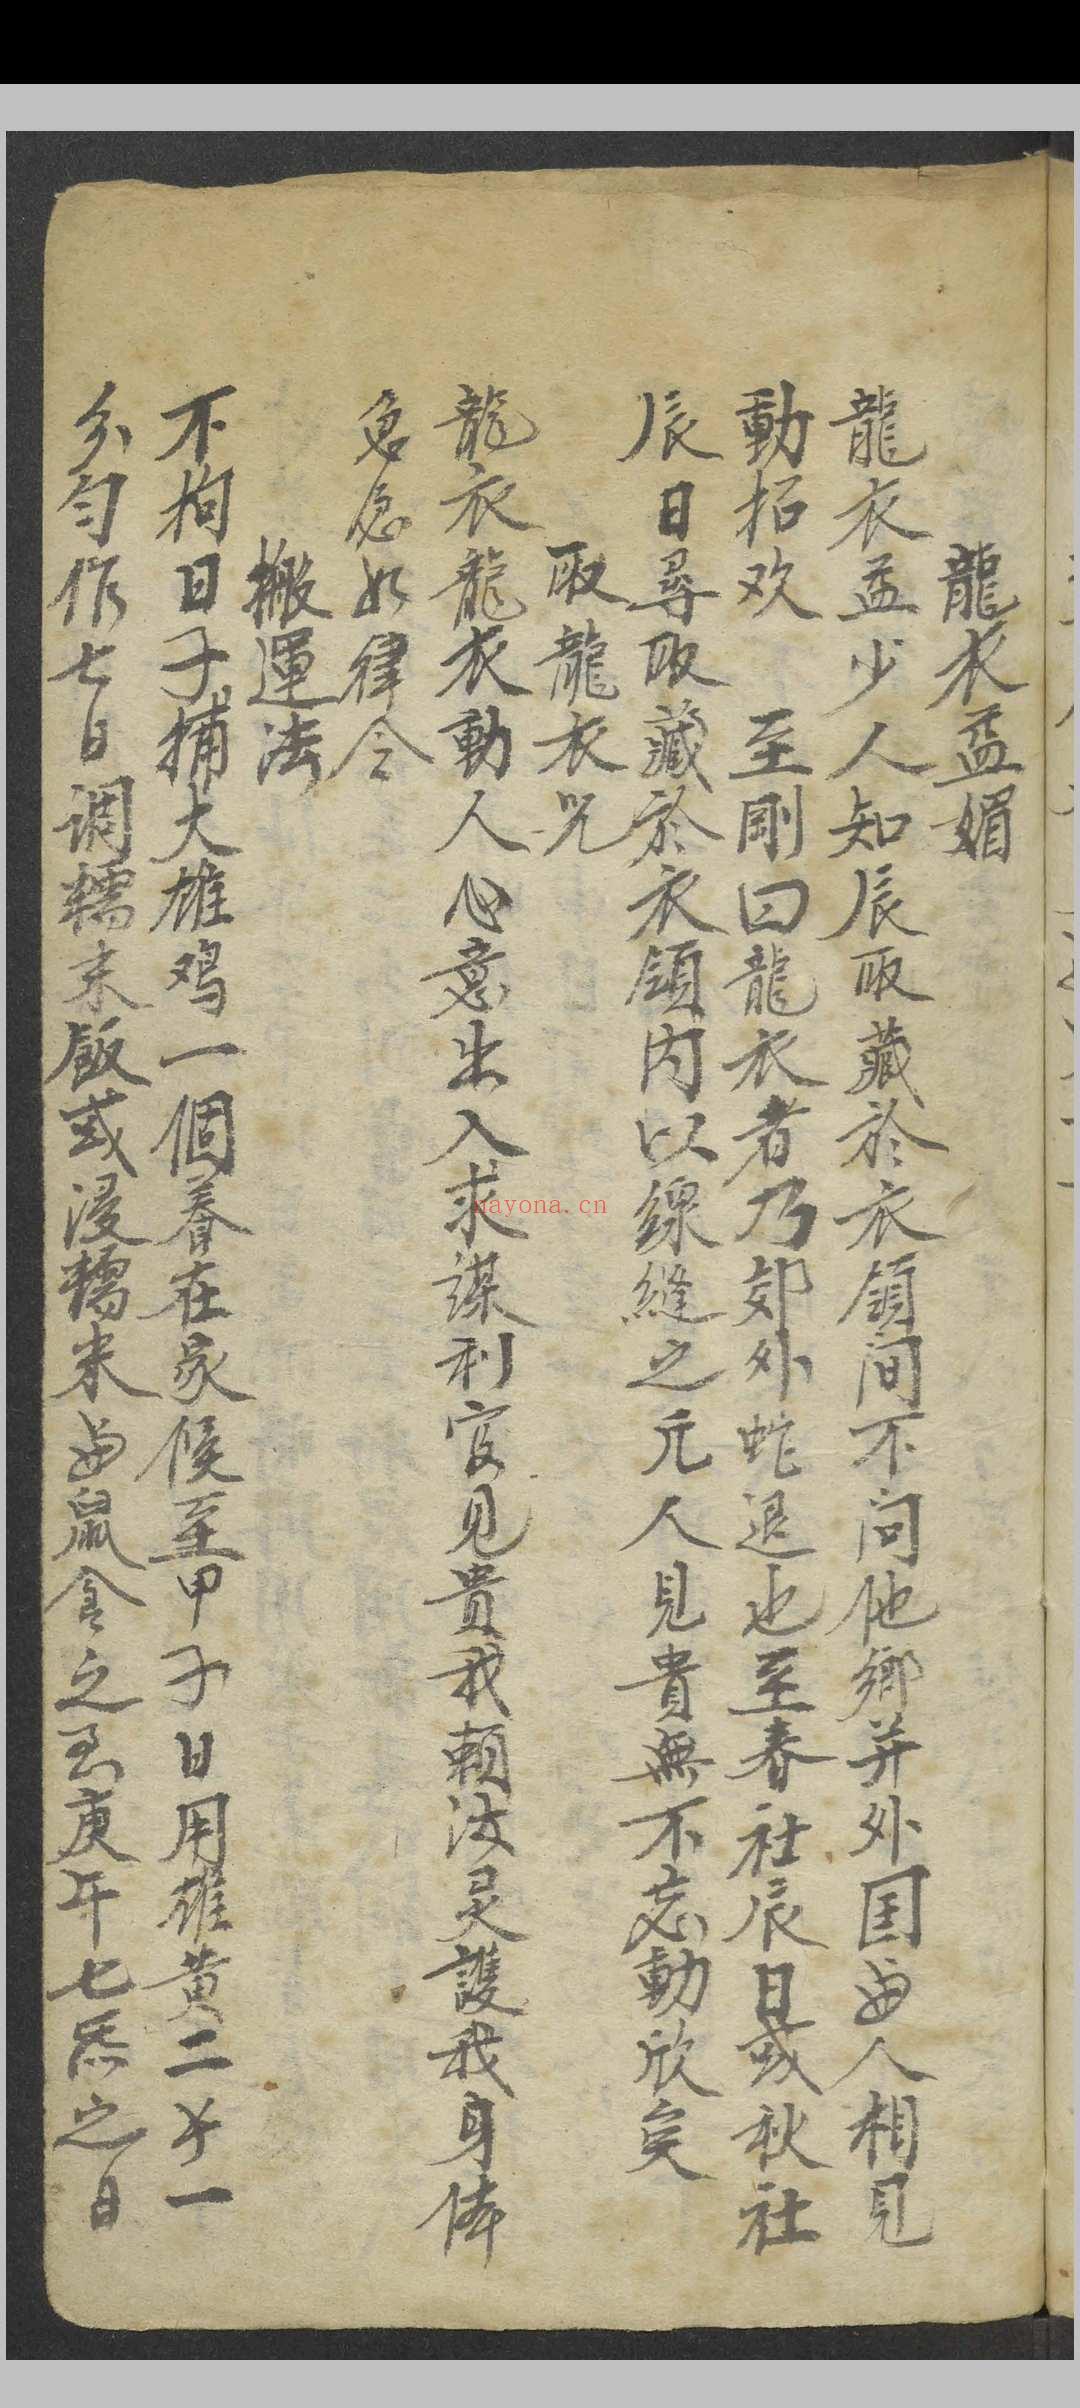 龍衣益媚
龍衣益少人知辰取藏於衣領间不问他鄉并外国与人相見
動招欢 至剛曰龍衣者乃郊外蛇退也至春社辰日或秋社
辰日尋取藏於衣領内以線縫之元人見貴無不忘動欣矣
取龍衣咒
龍衣龍衣動人心意出入求謀利官見貴我賴汝灵護我身体
急急如律令
搬運法
不拘日子捕大雄鸡一個養在家候至甲子日用雄黄二分一
分勻作七日调糯米飯或浸糯米与鼠食之至庚午七炁之日
nayona.cn